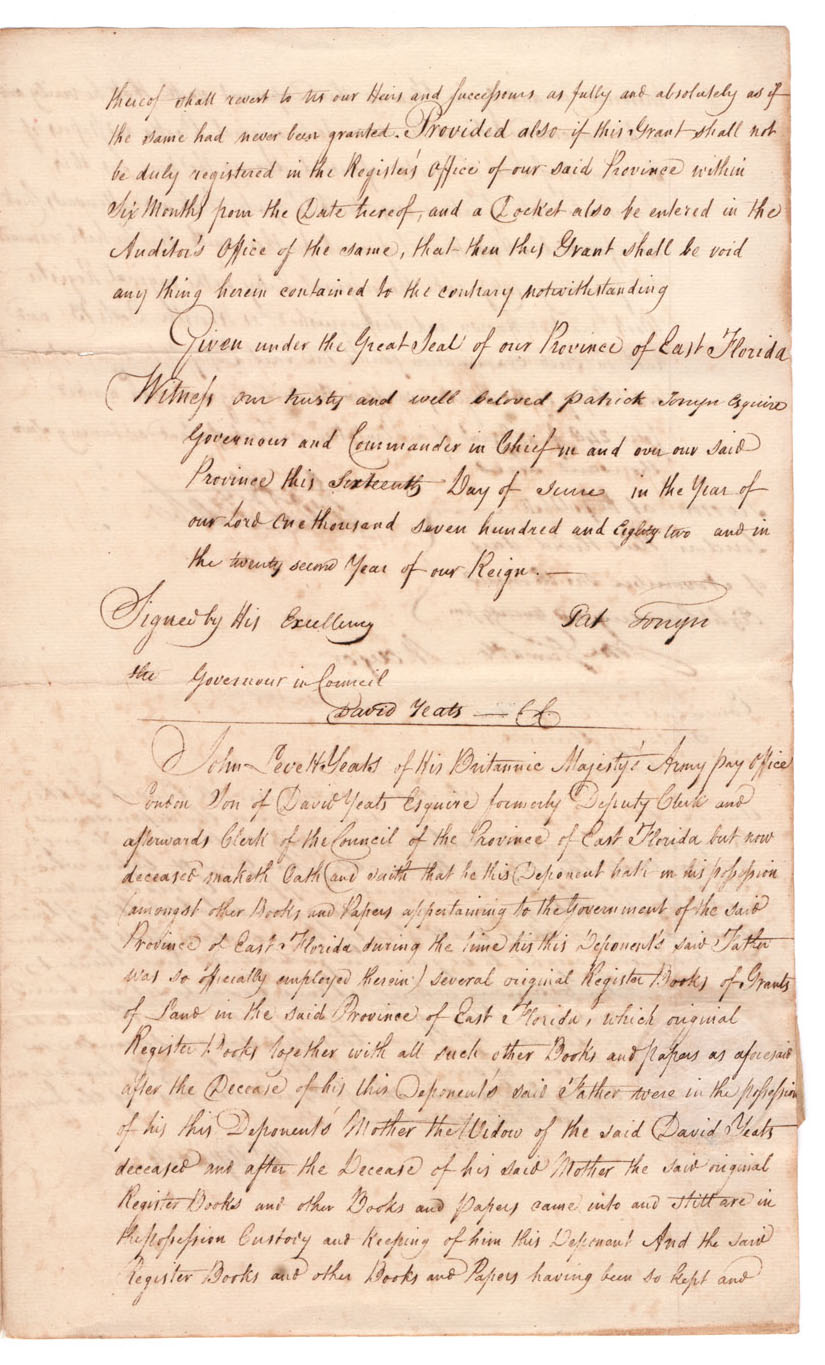 thereof shall revert to us our Heirs and Successours as fully and absolutely as if
the same had never been granted. Provided also if this Grant shall not
be duly registered in the Register's Office of our said Province within
Six Months from the Date hereof, and a Docket also be entered in the
Auditor's Office of the same, that then this Grant shall be void
any thing herein contained to the contrary notwithstanding
Given under the Great Seal of our Province of East Florida
Witness our trusty and well beloved Patrick Tonyn Esquire
Governour and Commander in Chief in and over our said
Province this Sixteenth Day of June in the Year of
our Lord One thousand seven hundred and Eighty two and in
the twenty second Year of our Reign. —
Signed by His Excellency Pat Tonyn
the Governour in Council
David Yeats — C C
John Levett Yeats of His Britannic Majesty's Army pay Office
London Son of David Yeats Esquire formerly Deputy Clerk and
afterwards Clerk of the Council of the Province of East Florida but now
deceased maketh Oath and saith that he this Deponent hath in his possession
(amongst other Books and Papers appertaining to the Government of the said
Province of East Florida during the time his this Deponent's said Father
was so officially employed therein) several original Register Books of Grants
of Land in the said Province of East Florida, which original
Register Books together with all such other Books and papers as aforesaid
after the Decease of his this Deponent's said Father were in the possession
of his this Deponent's Mother the Widow of the said David Yeats
deceased and after the Decease of his said Mother the said original
Register Books and other Books and papers came into and still are in
the possession Custody and Keeping of him this Deponent And the said
Register Books and other Books and Papers having been so kept and